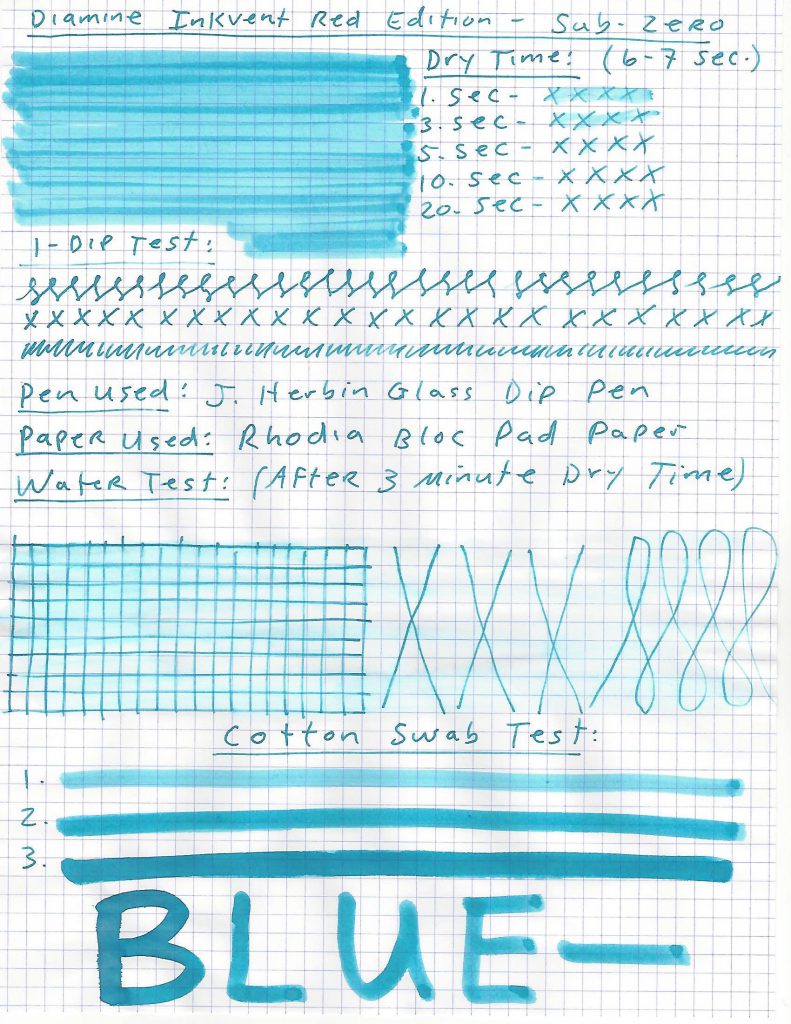 Diamine Inkvent Red Edition - Sub-Zero
Dry Time: (6-7 sec.)
1. sec - x x x x
3. sec - x x x x
5. sec - x x x x
10. sec - x x x x
20. sec - x x x x
1-Dip Test:
x x x x x x x x x x x x x x x x x x x x x x x x x x x x
Pen Used: J. Herbin Glass Dip Pen
Paper Used: Rhodia Bloc Pad Paper
Water Test: (After 3 minute Dry Time)
X X X
Cotton Swab Test:
1.
2.
3.
BLUE-